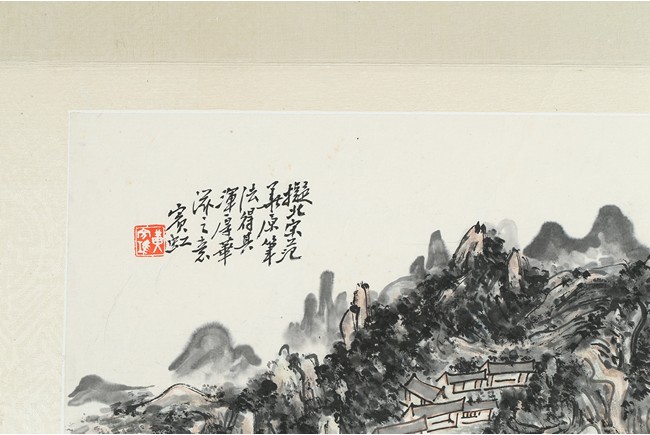 擬北宋范
華原筆
法得其
渾厚華
滋之意
賓虹
黃賓虹